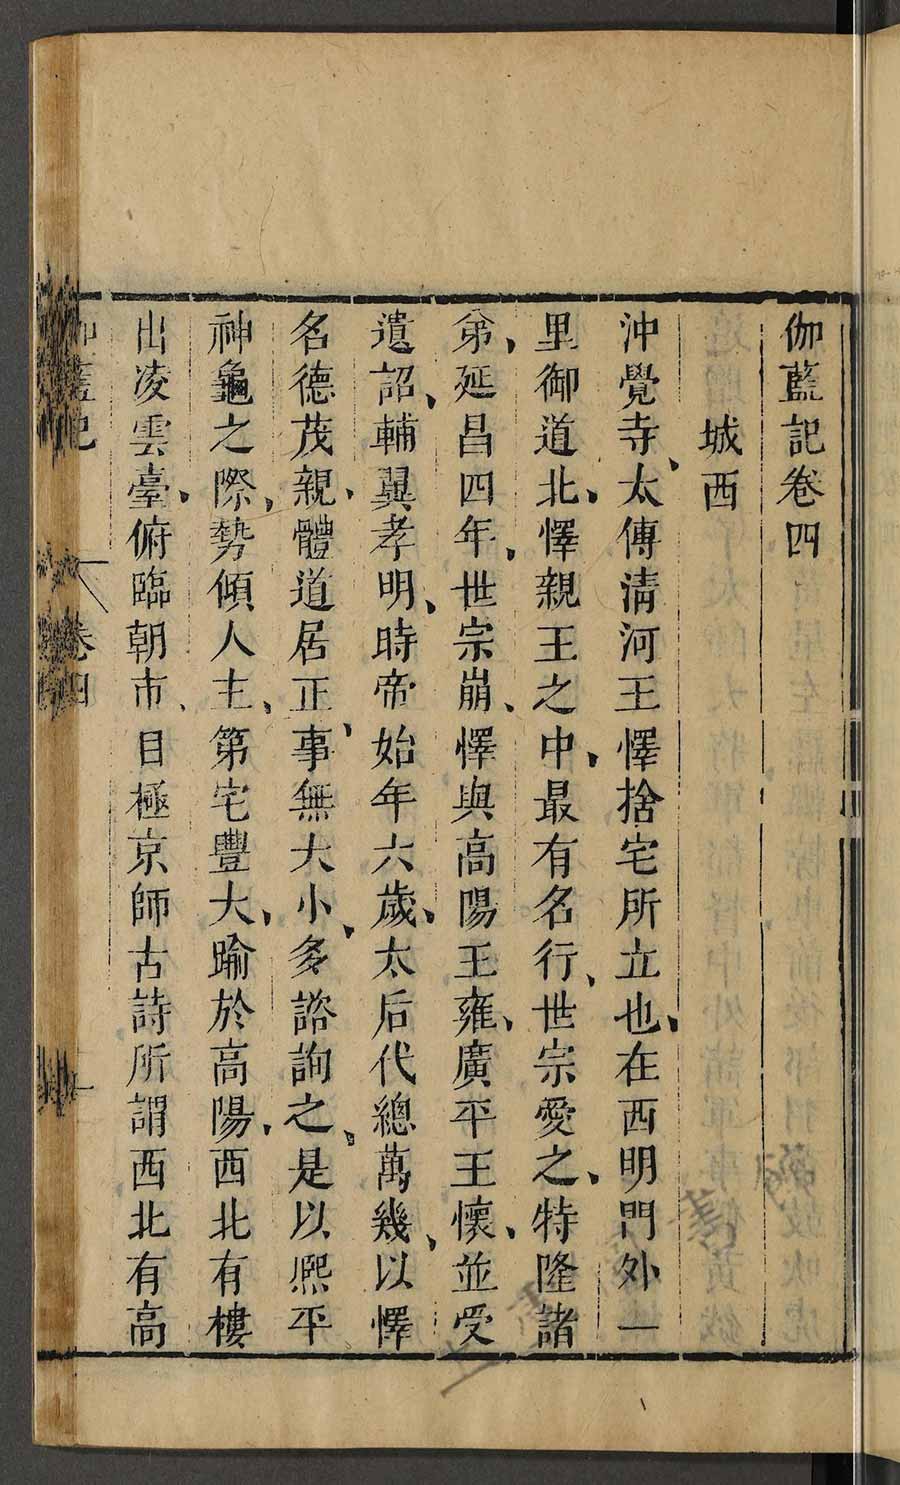 伽藍記卷四
城西
沖覺寺、太傅清河王懌捨宅所立也、在西明門外一
里御道北、懌親王之中、最有名行、世宗愛之、特隆諸
弟、延昌四年、世宗崩、懌與高陽王雍、廣平王懷、並受
遺詔、輔翼孝明、時帝始年六歲、太后代總萬幾、以懌
名德茂親、體道居正、事無大小、多諮詢之、是以熈平
神龜之際、勢傾人主、第宅豐大、踰於高陽、西北有樓
出凌雲臺、俯臨朝市、目極京師古詩所謂西北有高
伽藍記 卷四